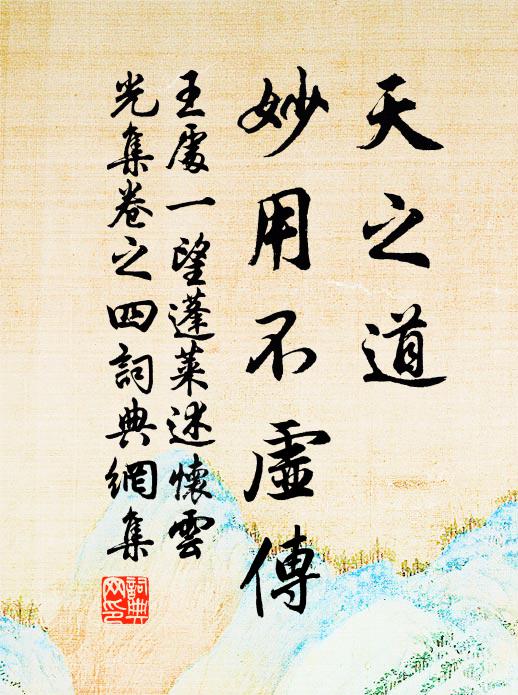 天之道
妙用不虛傳
王處一望蓬萊述懷雲
光集卷之四詞典網集
詞典
网印